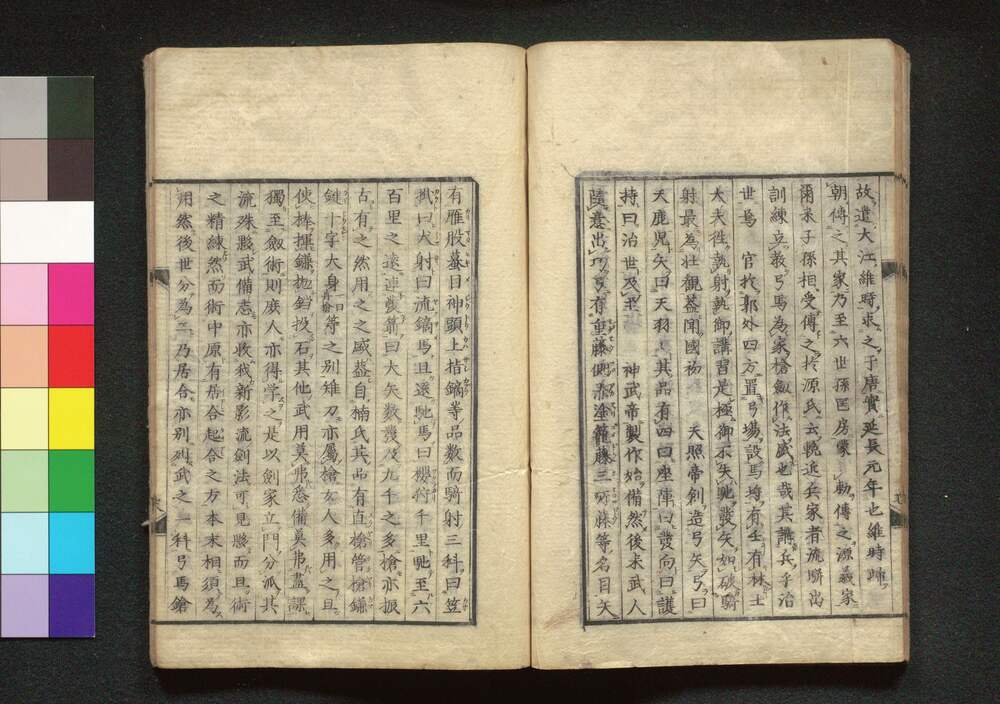 故遣大江維時求之于唐實延長元年也維時歸
朝傳之其家乃至六世孫匡房蒙 勅傳之源義家
爾來子孫相受傳之於源氏云晩近兵家者流駢出
訓練立教弓馬為家槍劔作法盛也哉其講兵乎治
世焉 官於郭外四方置弓場設馬埒有壬有林士
大夫徃執射執御講習是極御不失馳發矢如破騎
射最為壮觀蓋聞國初 天照帝創造弓矢弓曰
天鹿児矢曰天羽其品有四曰座陣曰發向曰護
持曰治世及至 神武帝製作始備然後末武人
意出巧弓有重藤側黒塗籠藤三所藤等名目矢
有雁股蟇目神頭上指鏑等品数而騎射三科曰笠
掛曰犬射曰流鏑馬且遠馳馬曰櫻狩千里馳至六
百里之遠連發箭曰大矢数幾及九千之多槍亦振
古有之然用之之盛葢自楠氏其品有直槍管槍鎌
鎗十字大身等之別雉刀亦屬槍女人多用之且
使捧撰鎌抛鎖投石其他武用莫弗悉備莫弗盡謀
獨至劔術則庶人亦得学之是以剣家立門分派其
流殊夥武備志亦收我新影流劍法可見夥而且術
之精練然而術中原有居合起合之方本末相須為
用然後世分為二乃居合亦別列武之一科弓馬鎗